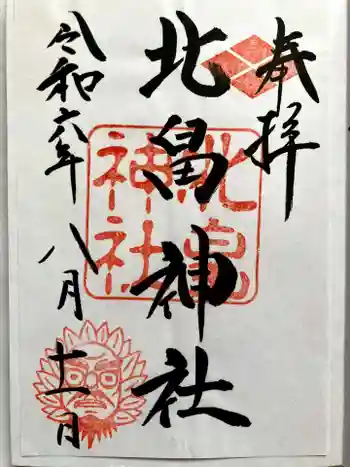 奉拝
北畠神社
令和六年 八月 十一日
北畠
神社